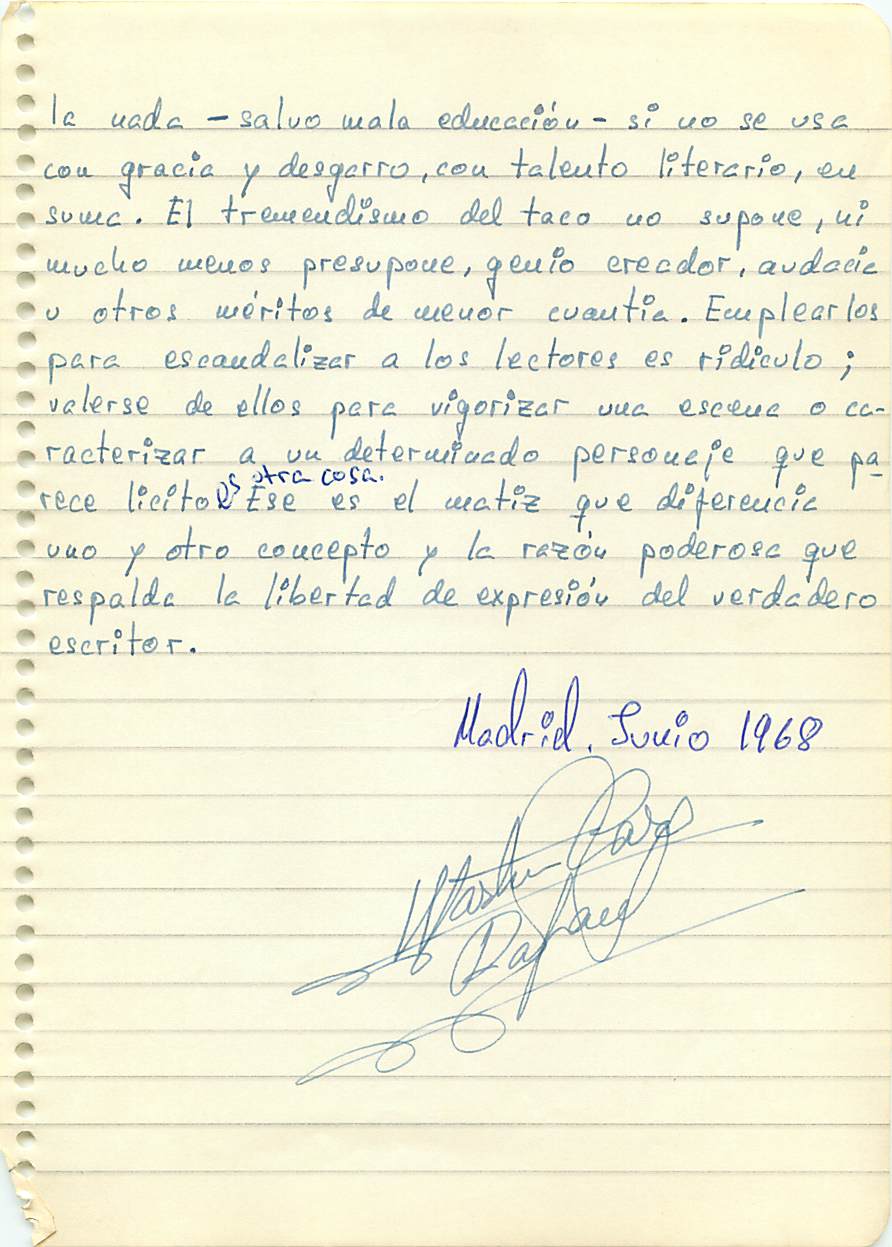 la nada - salvo mala educación - si no se usa
con gracia y desgarro, con talento literario, en
suma. El tremendismo del taco no supone, ni
mucho menos presupone, genio creador, audacia
u otros méritos de menor cuantía. Emplearlos
para escandalizar a los lectores es ridículo;
valerse de ellos para vigorizar una escena o ca-
racterizar a un determinado personaje que pa-
es otra cosa.
rece lícito Ese es el matiz que diferencia
uno y otro concepto y la razón poderosa que
respalda la libertad de expresión del verdadero
escritor.
Madrid. Junio 1968